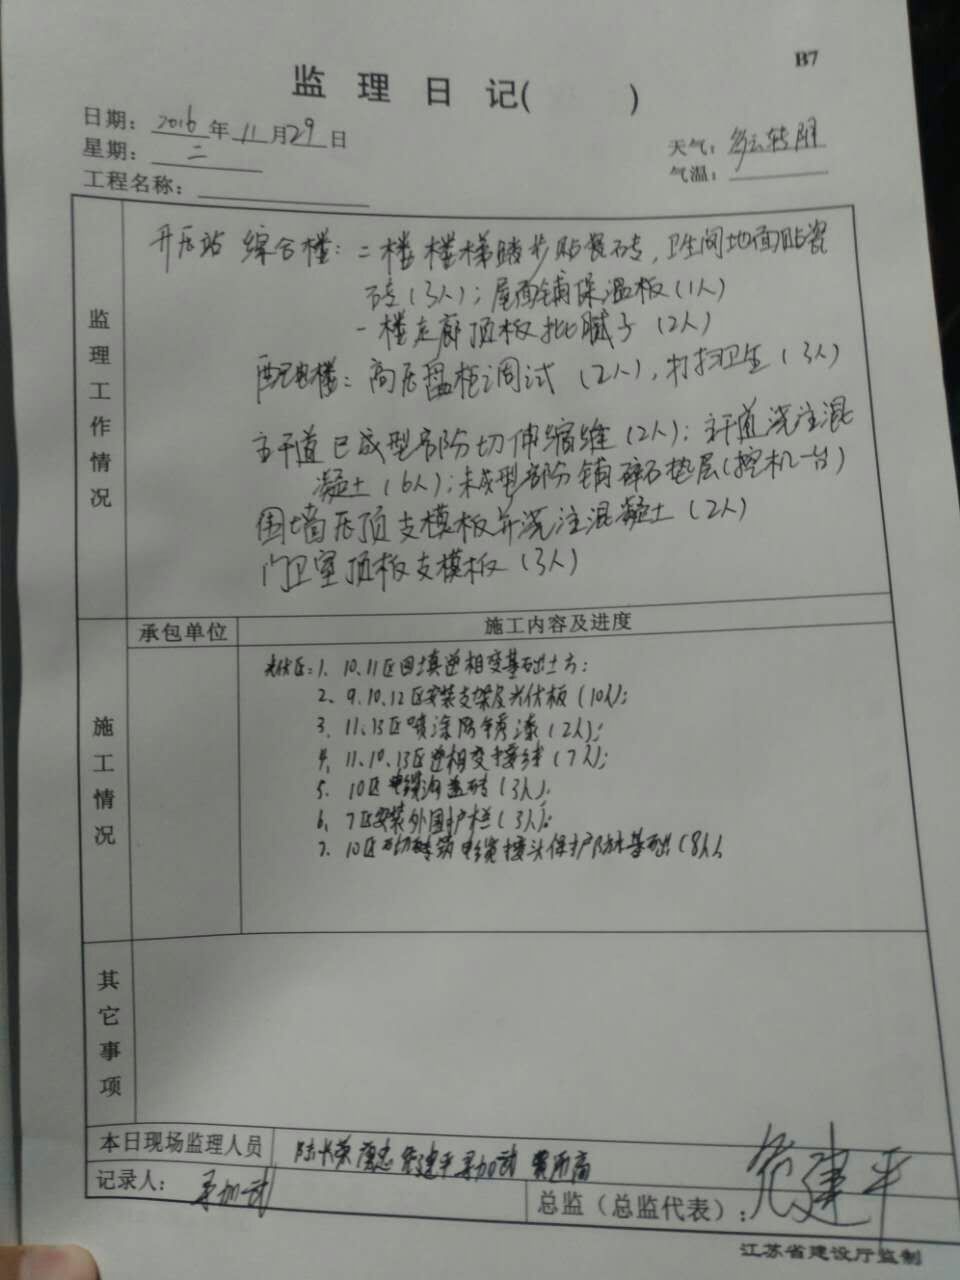 B7
监 理 日 记( )
日期: 2016 年 11 月 29 日
天气: 多云转阴
星期: 二
气温:
工程名称:
监理工作情况
开压站 综合楼: 二楼楼梯踏步贴瓷砖, 卫生间地面贴瓷
砖(3人); 屋面铺保温板(1人)
一楼走廊顶板批腻子(2人)
配电楼: 高压盘柜调试(2人), 打扫卫生(3人)
主干道已成型部份切伸缩维(2人); 主干道浇注混
凝土(6人); 未成型部份铺碎石垫层(挖机一台)
围墙压顶支模板并浇注混凝土(2人)
门卫室顶板支模板(3人)
施工情况
承包单位
施工内容及进度
光伏区: 1. 10.11区回填逆相变基础土方;
2、9.10.12区安装支架及光伏板(10人);
3. 11.13区喷涂防锈漆(2人);
4. 11.10.13区逆相变接线(7人);
5. 10区电缆沟盖砖(3人);
6. 7区安装外围护栏(3人);
7. 10区砌砖筑电缆接头保护防水基础(8人)
其它事项
本日现场监理人员
建平
记录人:
总监(总监代表): 建平
江苏省建设厅监制